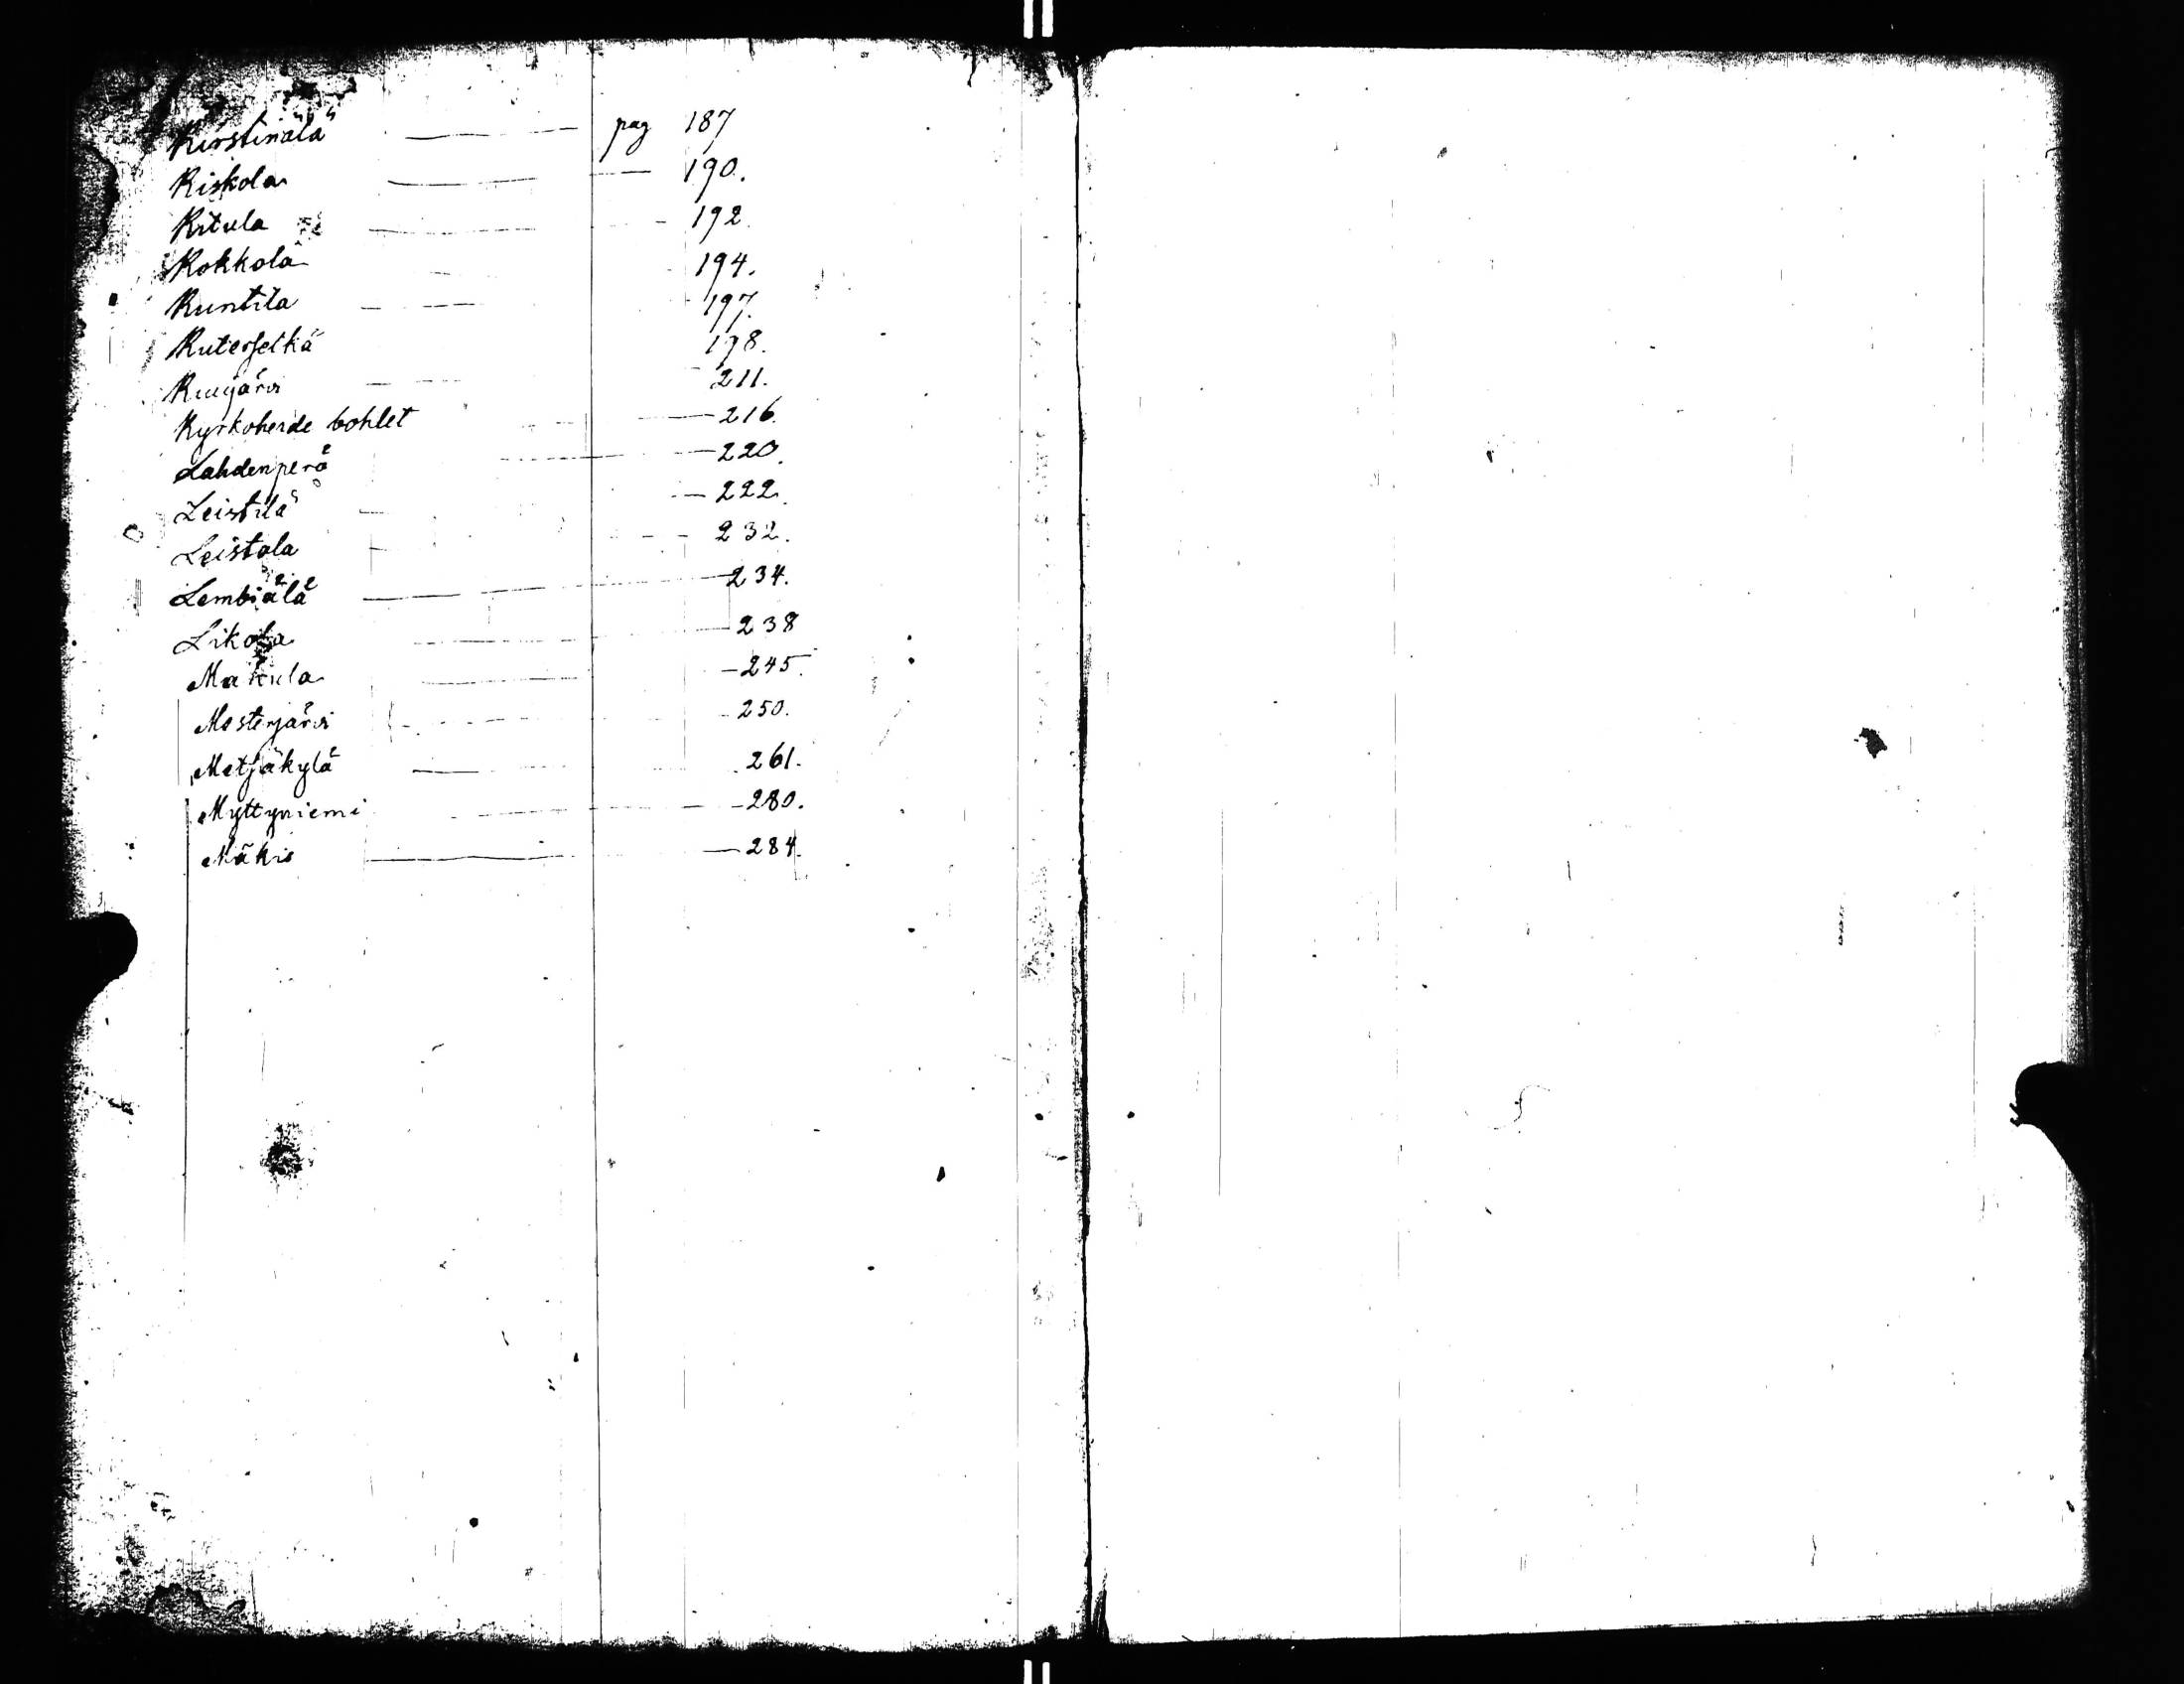 Kirstinälä — pag 187
Kiskola — 190.
Kitula — 192.
Kokkola 194.
Kuntila — 197.
Kuterselkä 198.
Kuujärvi — 211.
Kyrkoherde bohlet — 216.
Lahdenperä — 220.
Leistilä — 222.
Leistola — 232.
Lembiälä — 234.
Likola — 238
Makula — 245.
Mesterjärvi — 250.
Metsäkylä — 261.
Myttyniemi — 280.
Mäkis — 284.